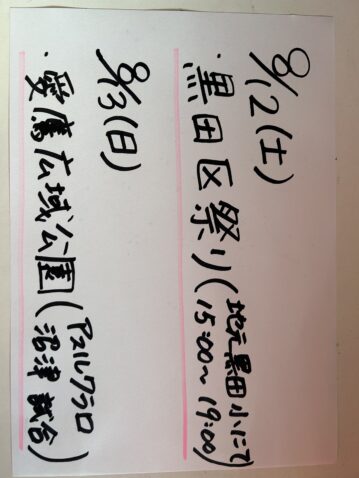 8/12(土)
・黒田区祭り(地元黒田小にて
15:00〜19:00)
8/13(日)
・愛鷹広域公園(アスルクラロ
沼津試合)